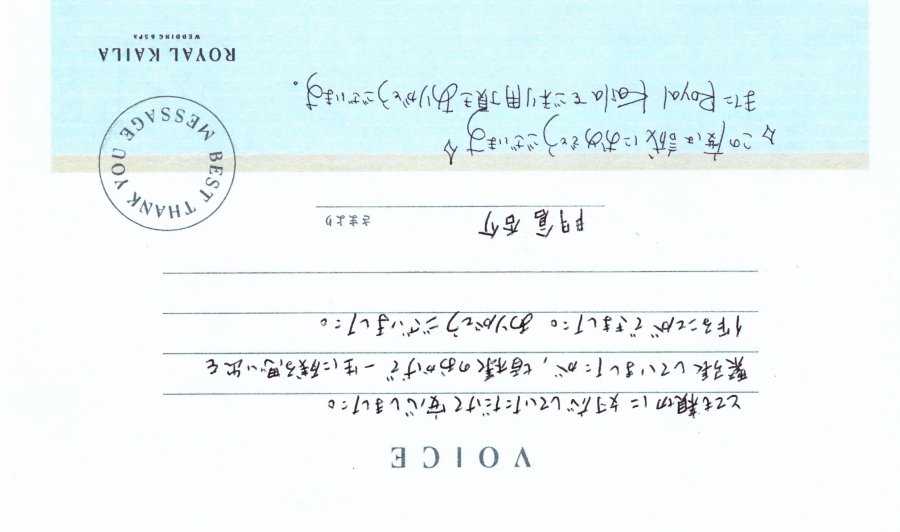 VOICE
とても親切に対応していただけて安心しました。
緊張していましたが、皆様のおかげで一生に残る思い出を
作ることができました。ありがとうございました。
さまより
☆この度は誠におめでとうございます☆
またRoyal Kailaをご利用頂きありがとうございます。
BEST THANK YOU MESSAGE
ROYAL KAILA
WEDDING & SPA